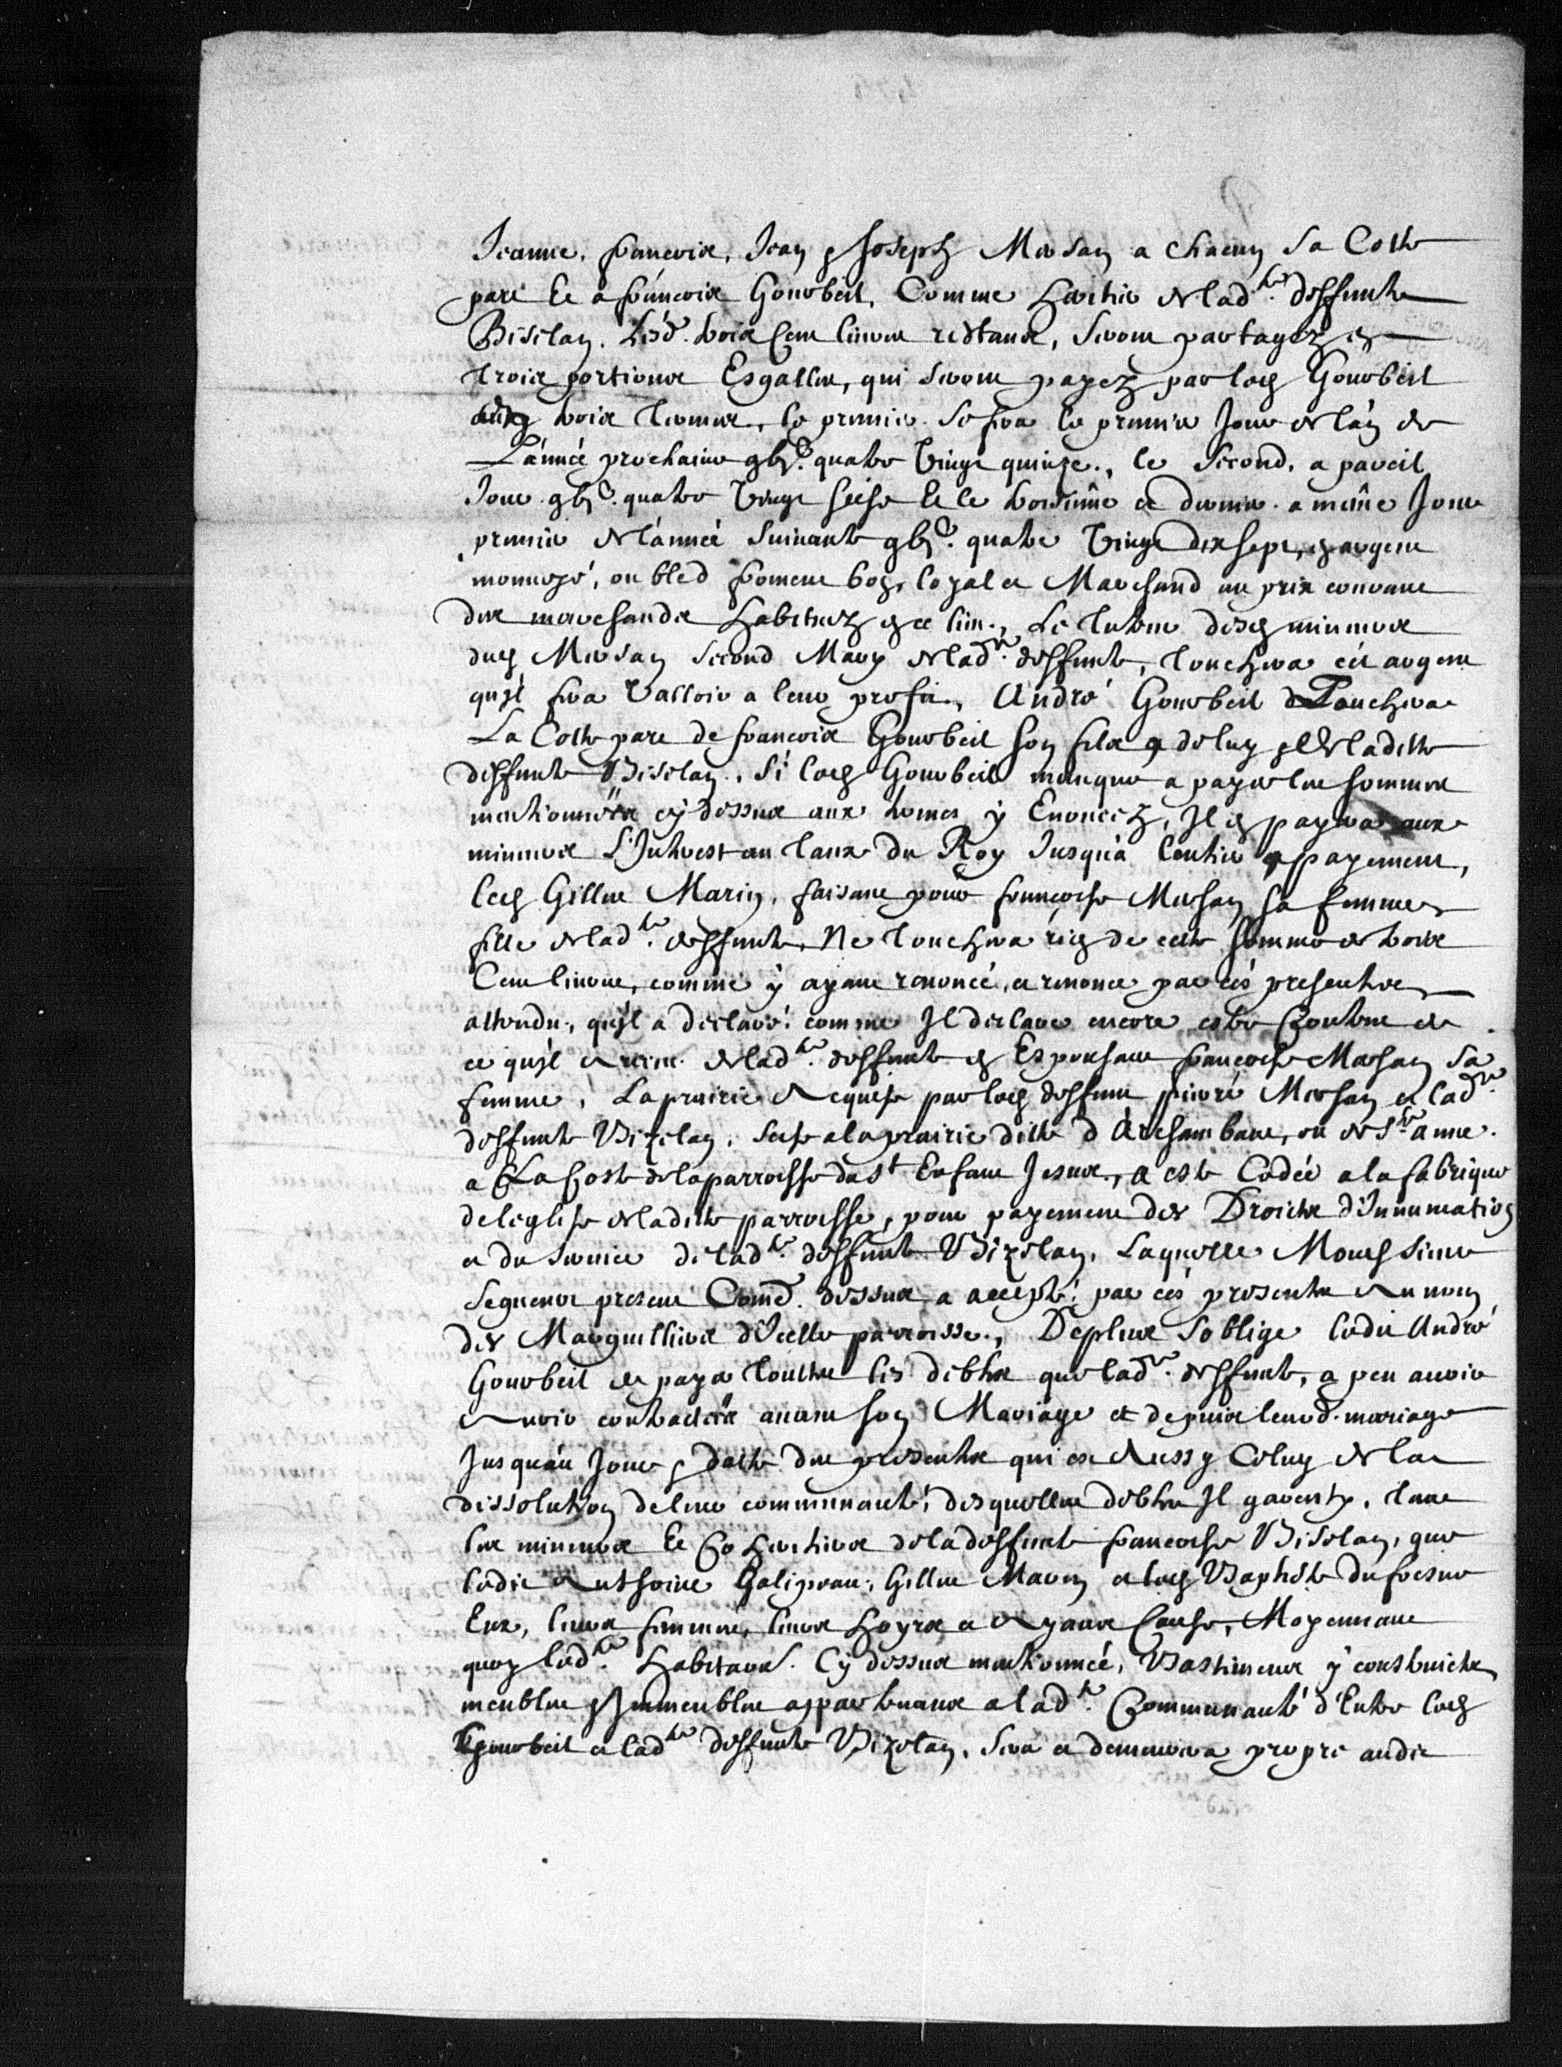 Jeanne, francois, Jean & Joseph Mersan a chacun sa Cotte
part Et a francois Gourbeil, Comme heritier de lad.te deffunte
Biselan. Lesd. trois Cent livres restans, seront partagez en
trois portions Esgalles, qui seront payez par led. Gourbeil
en trois termes, le premier sefera le premier Jour de l'an de
L'année prochaine gbjC. quatre vingt quinze, le second, a pareil
Jour gbjC. quatre vingt seise Et le troisième et dernier a même Jour
premier de l'année suivante gbjC. quatre vingt dix sept, en argent
monnoyé, ou bled froment bon, loyal et Marchand au prix courant
des marchands habituez en ce lieu, Le tuteur desd. mineurs
dud. Mersan second Mary de lad.te deffunte, touchera cet argent
qu'jl fera valloir a leur profit, André Gourbeil touchera
La Cotte part de francois Gourbeil son fils & de luy & de laditte
deffunte Biselan, Si led. Gourbeil manque a payer les sommes
mentionnées cy dessus aux termes y Enoncez, Jl en payera aux
mineurs L'Interest au taux du Roy Jusqu'a l'entier payement,
led. Gilles Marin, faisant pour francoise Mersan sa femme
fille de lad.te deffunte, Ne touchera rien de cette somme de trois
Cent livres, comme y ayant renoncé, et renonce par ces presentes
attendu, qu'jl a declaré comme Jl declare encore estre Content de
ce qu'jl a receu de lad.te deffunte en Espousant francoise Mersan sa
femme, La prairie Acquise par led. deffunt pierre Mersan et lad.te
deffunte Bizelan, scise a la prairie ditte d'Archambaut, ou de S.te anne
a La Coste de la parroisse du S.t Enfant Jesus, a esté Cedée a la fabrique
de l'eglise de laditte parroisse, pour payement des Droicts d'Innumation
et du service de lad.te deffunte Bizelan, Laquelle Mons. sieur
Seguenot present Comd. dessus a accepté par ces presentes Au nom
des Marguilliers d'Icelle parroisse, Deplus s'oblige ledit André
Gourbeil de payer touttes les debtes que lad.te deffunte, a peu avoir
Avoir contractées avant son Mariage et depuis leurd. mariage
Jusqu'au Jour & datte des presentes qui est Aussy Celuy de la
dissolution de leur communauté, desquelles debtes Jl garenty, tant
les mineurs Et Coheritiers de la deffunte francoise Biselan, que
ledit Anthoine Galipeau, Gilles Marin et led. Baptiste dufresne
Eux, leurs femmes, leurs hoyrs et Ayans Cause, Moyennant
quoy lad.te habitaon. Cy dessus mentionnée, Bastimens y construicts
meubles & Immeubles appartenans a lad.te Communauté d'Entre led.
Gourbeil et lad.te deffunte Bizelan, sera et demeurera propre audit